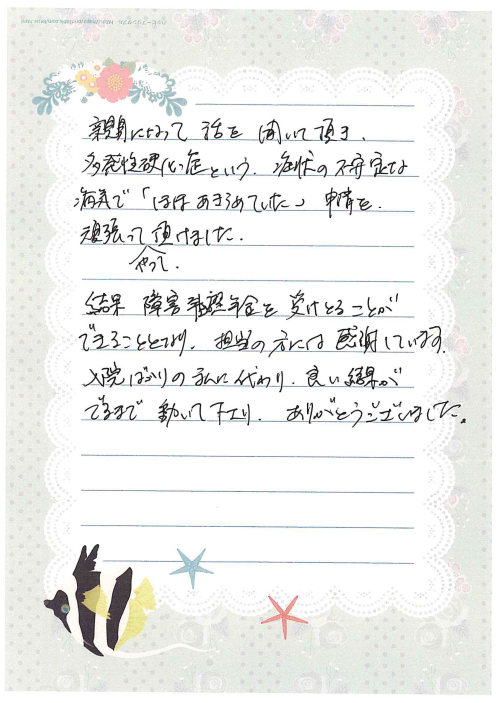 親身になって 話を 聞いて頂き、
多発性硬化症という、症状の不安定な
病気で「ほぼあきらめていた」申請を、
頑張って頂けました。
やって、
結果 障害 年金を 受けとることが
できることとなり、担当の方には 感謝しています。
入院ばかりの私に代わり、良い結果が
でるまで 動いて下さり、ありがとうございました。